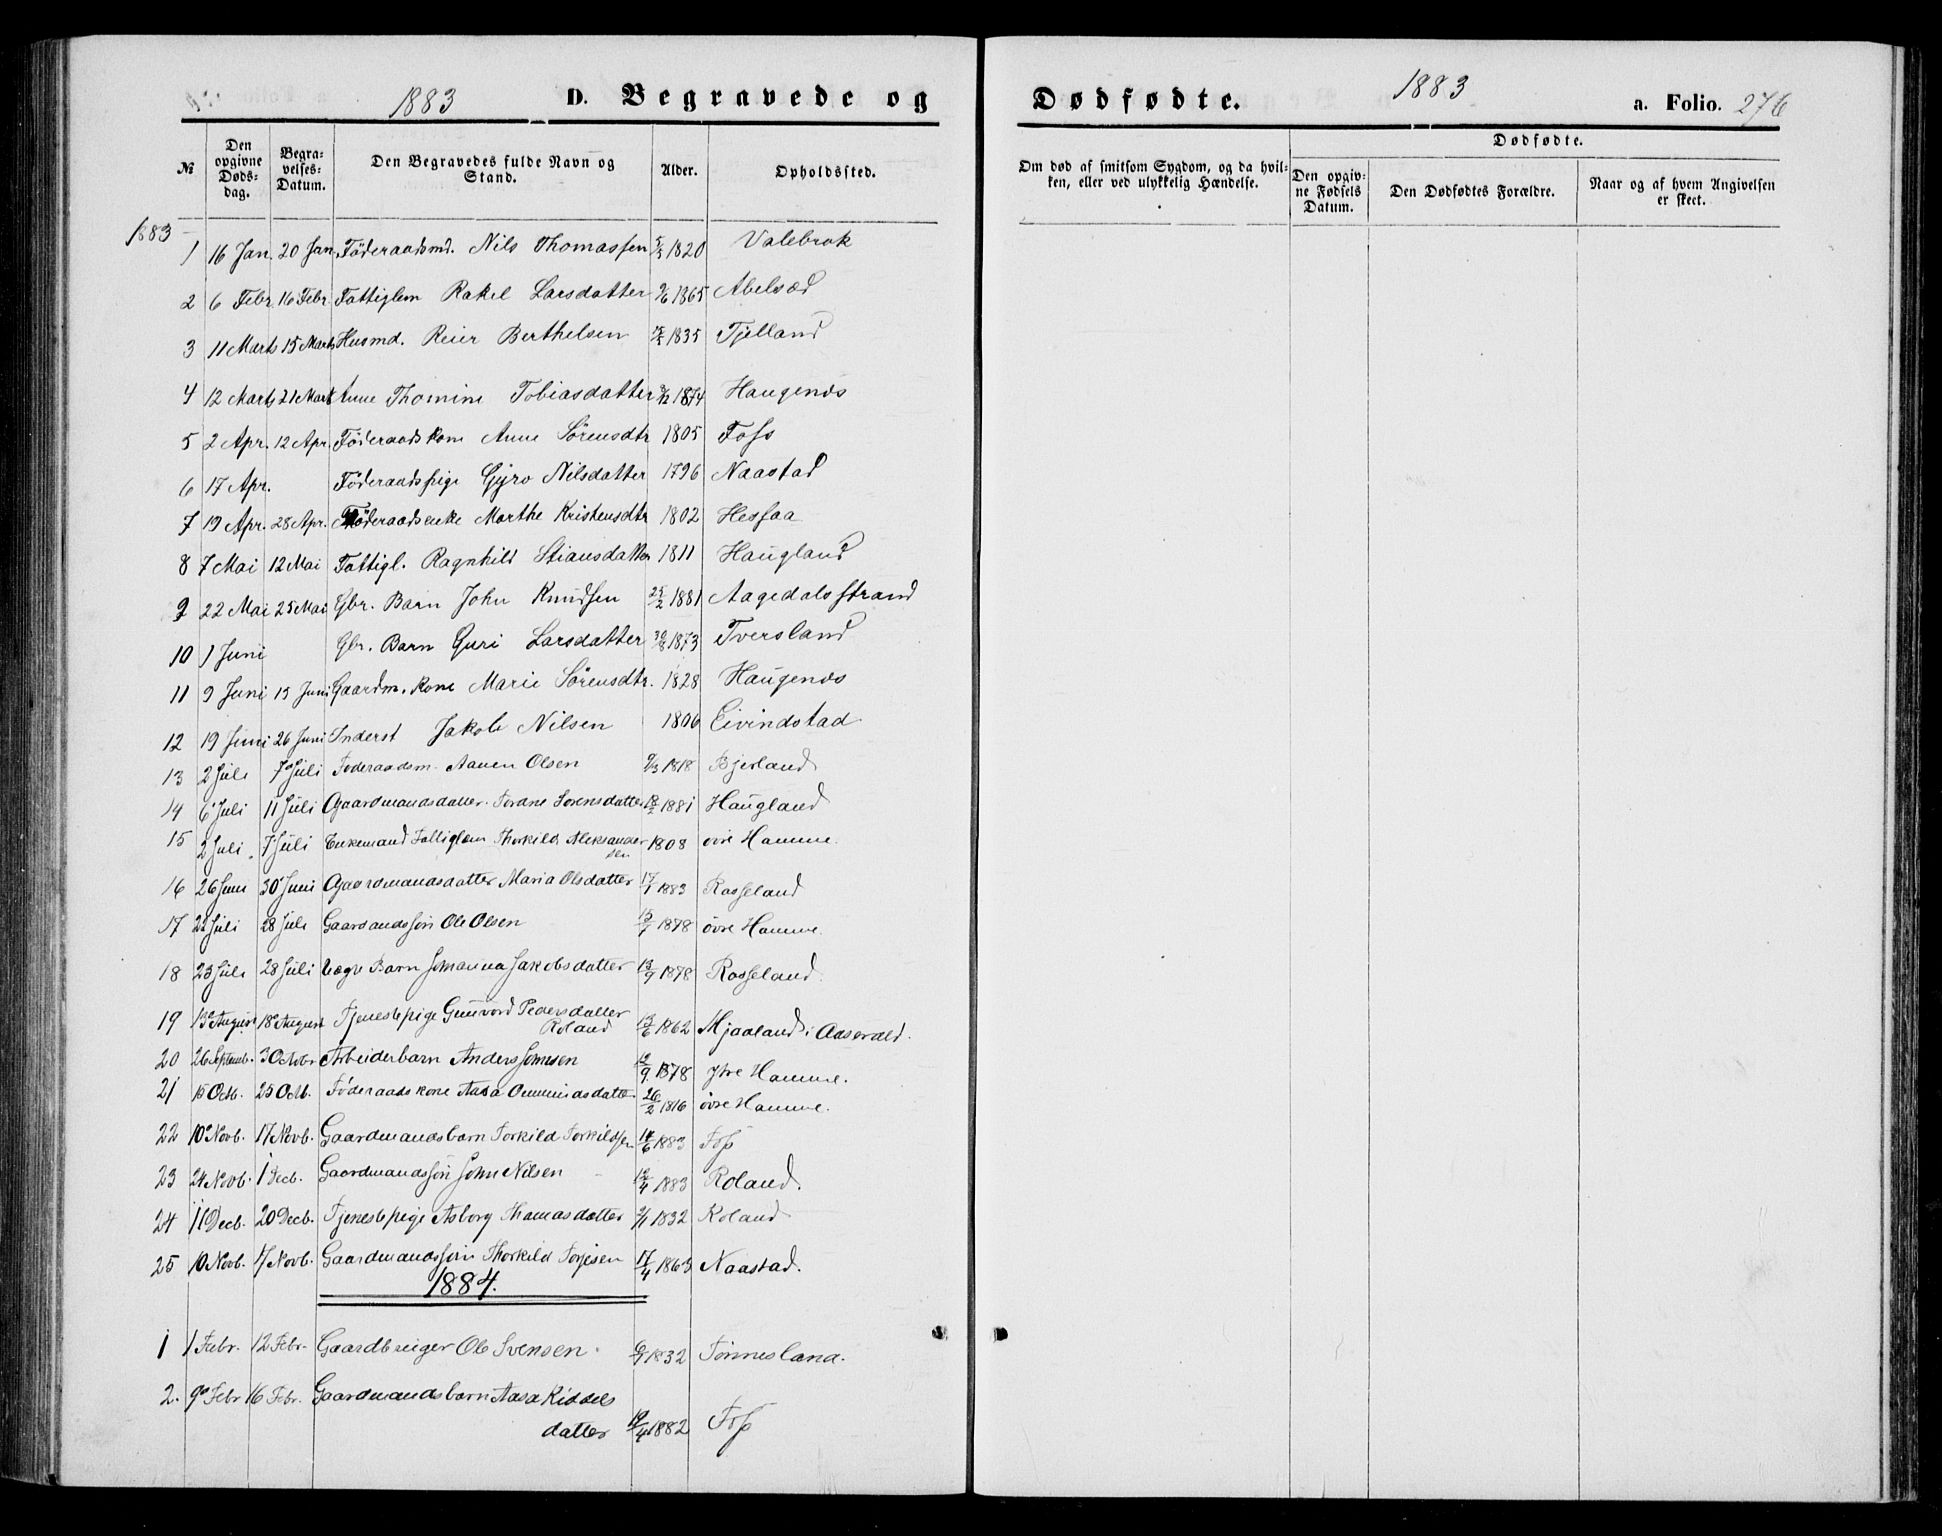 1883 D. Begravede og
Dødfødte. 1883 a. Folio. 276
№ Den opgivne Døds-dag. Begra-velses-Datum. Den Begravedes fulde Navn og Stand. Alder. Opholdssted.
Om død af smitsom Sygdom, og da hvil-ken, eller ved ulykkelig Hændelse. Dødfødte. Den opgiv-ne Fødsels Datum. Den Dødfødtes Forældre. Naar og af hvem Angivelsen er skeet.
1883
1 16 Jan. 20 Jan. Föderaadsmd. Nils Thomassen 1820 Valebrok
2 6 Febr. 16 Febr. Fattiglem Rakel Larsdatter 9/6 1865 Abelsæd
3 11 Marts 15 Marts Husmd. Reier Berthelsen 1835 Tjelland
4 12 Marts 21 Marts Anne Thomine Tobiasdatter 1874 Haugenæs
5 2 Apr. 12 Apr. Föderaadskone Anne Sörensdtr 1805 Foss
6 17 Apr. Föderaadspige Gyro Nilsdatter 1796 Naastad
7 19 Apr. 28 Apr. Föderaadsenke Marthe Kristensdtr 1802 Hesfaa
8 7 Mai 12 Mai Fattigl. Ragnhild Stiansdatter 1811 Haugland
9 22 Mai 25 Mai Gbr. Barn John Knudsen 25/2 1881 Aagedalsstrand
10 1 Juni Gbr. Barn Guri Larsdatter 30/8 1873 Tversland
11 9 Juni 15 Juni Gaardm. kone Marie Sörensdtr. 1828 Haugenæs
12 19 Juni 26 Juni Inderst Jakob Nilsen 1806 Eivindstad
13 2 Juli 7 Juli Föderaadsm. Aanen Olsen 9/3 1818 Bjerland
14 6 Juli 11 Juli Gaardmandsdatter Tordne Sorensdatter 18/2 1881 Haugland
15 2 Juli 7 Juli Enkemand Fattiglem Thorkild Aleksander
sen 1808 övre Homme.
16 26 Juni 30 Juni Gaardmandsdatter Maria Olsdatter 17/1 1883 Rosseland
17 22 Juli 28 Juli Gaardandssön Ole Olsen 15/7 1878 övre Homme.
18 23 Juli 28 Juli Uægte Barn Johanna Jakobsdatter 13/9 1878 Rosseland.
19 13 August 18 August Tjenestepige Gunvord Pedersdatter
Roland 13/6 1862 Mjaaland i Aaserald.
20 26 Septemb. 3 Octobr. Arbeiderbarn Anders Johnsen 12/9 1878 Ytre Homme.
21 15 Octb. 25 Octb. Föderaadskone Aasa Ommundsdatter 26/2 1816 övre Homme.
22 10 Novb. 17 Novb. Gaardmandsbarn Torkild Torkildsen 14/6 1883 Foss
23 24 Novb. 1 Decb. Gaardmandssön John Nilsen 12/4 1883 Roland.
24 11 Decb. 20 Decb. Tjenestepige Asborg Thomasdatter 9/11 1832 Roland
25 10 Novb. 17 Novb. Gaardmandssön Thorkild Torjesen 17/4 1863 Naastad.
1884.
1 1 Febr. 12 Febr. Gaardbruger Ole Svensen 1832 Tönnesland.
2. 9 Febr 16 Febr. Gaardmandsbarn Aasa Kiddels
datter 19/4 1882 Foss